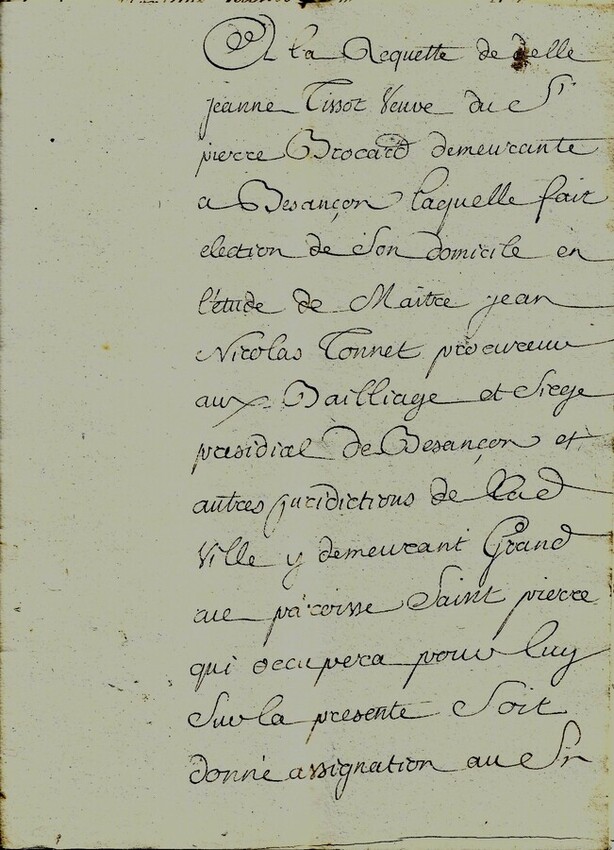 A la Requette de delle
jeanne Tissot Veuve du Sr
pierre Brocard demeurante
a Besançon laquelle fait
election de son domicile en
l'étude de Maitre jean
Nicolas Tonnet procureur
aux Bailliage et Siege
presidial de Besançon et
autres juridictions de lad
Ville y demeurant Grand
rue paroisse Saint pierre
qui occupera pour luy
Sur la presente Soit
donné assignation au Sr